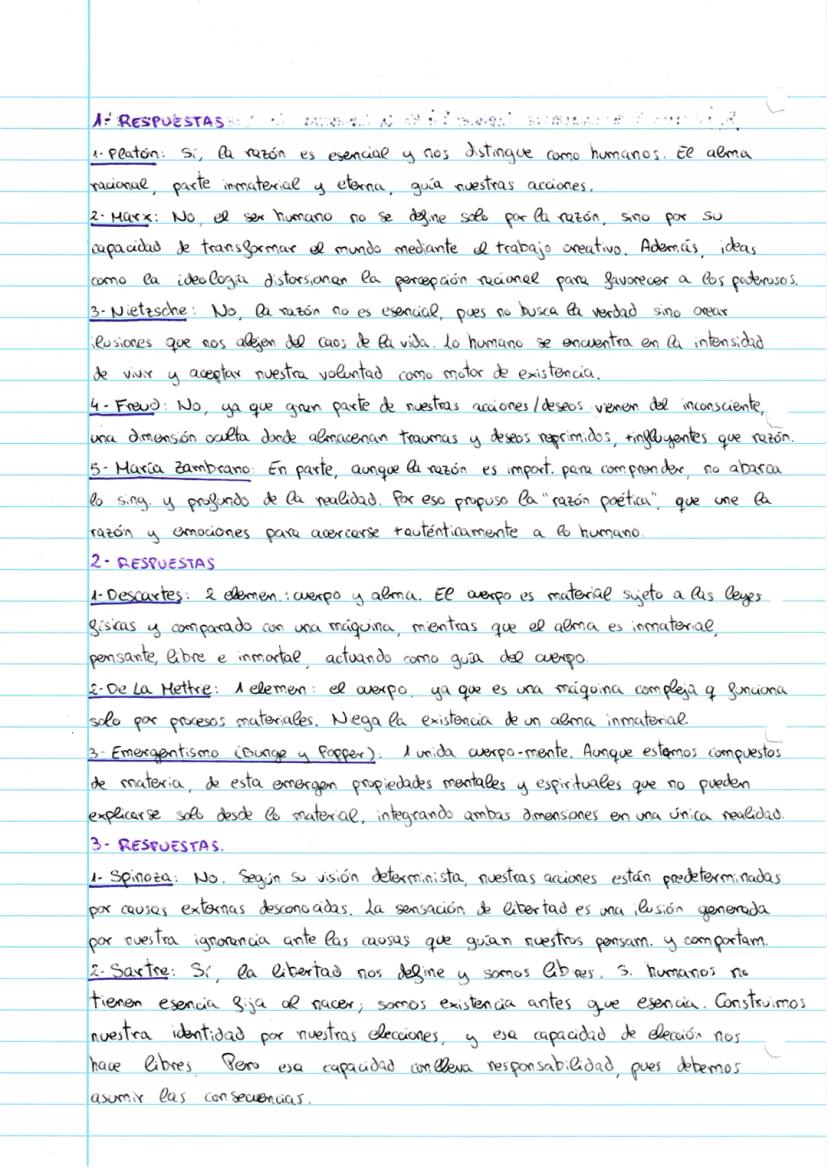 1- RESPUESTAS
1- Platón: Sí, la razón es esencial y nos distingue como humanos. El alma
racional, parte inmaterial y eterna, guía nuestras acciones.
2- Marx: No, el ser humano no se define solo por la razón, sino por su
capacidad de transformar el mundo mediante el trabajo creativo. Además, ideas
como la ideología distorsionan la percepción racional para favorecer a los poderosos.
3- Nietzsche: No, la razón no es esencial, pues no busca la verdad sino crear
ilusiones que nos alejen del caos de la vida. Lo humano se encuentra en la intensidad
de vivir y aceptar nuestra voluntad como motor de existencia.
4- Freud: No, ya que gran parte de nuestras acciones/deseos vienen del inconsciente,
una dimensión oculta donde almacenan traumas y deseos reprimidos, +influyentes que razón.
5- María Zambrano: En parte, aunque la razón es import. para comprender, no abarca
lo sing. y profundo de la realidad. Por eso propuso la "razón poética", que une la
razón y emociones para acercarse +auténticamente a lo humano.
2- RESPUESTAS
1- Descartes: 2 elemen.: cuerpo y alma. El cuerpo es material sujeto a las leyes
físicas y comparado con una máquina, mientras que el alma es inmaterial,
pensante, libre e inmortal, actuando como guía del cuerpo.
2- De La Mettre: 1 elemen: el cuerpo, ya que es una máquina compleja q funciona
solo por procesos materiales. Nega la existencia de un alma inmaterial.
3- Emergentismo (Bunge y Popper): 1 unida cuerpo-mente. Aunque estamos compuestos
de materia, de esta emergen propiedades mentales y espirituales que no pueden
explicarse solo desde lo material, integrando ambas dimensones en una única realidad.
3- RESPUESTAS.
1- Spinoza: No. Según su visión determinista, nuestras acciones están predeterminadas
por causas externas desconocidas. La sensación de libertad es una ilusión generada
por nuestra ignorancia ante las causas que guían nuestros pensam. y comportam.
2- Sartre: Sí, la libertad nos define y somos libres. S. humanos no
tienen esencia fija al nacer; somos existencia antes que esencia. Construimos
nuestra identidad por nuestras elecciones, y esa capacidad de elección nos
hace libres. Pero esa capacidad conlleva responsabilidad, pues debemos
asumir las consecuencias.